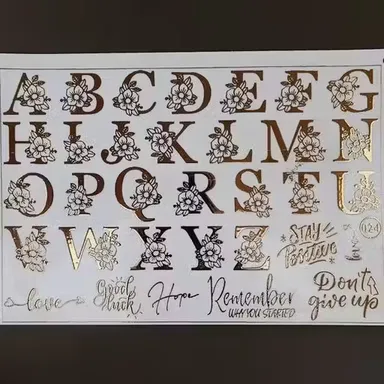 A B C D E F G
H I J K L M N
O P Q R S T U
V W X Y Z
STAY
Positive
love
124
love
Good
luck
Hope
Remember
WHY YOU STARTED
Don't
give up